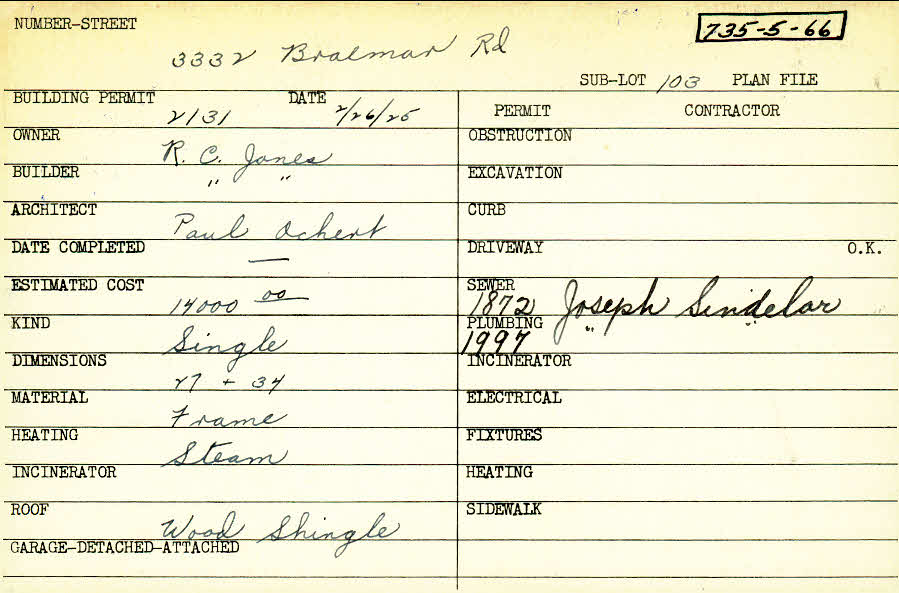 NUMBER-STREET
3332 Braemar Rd
735-5-66
SUB-LOT 103 PLAN FILE
BUILDING PERMIT 2131 DATE 2/26/25
PERMIT CONTRACTOR
OWNER R. C. Jones
OBSTRUCTION
BUILDER " "
EXCAVATION
ARCHITECT Paul Ochert
CURB
DATE COMPLETED —
DRIVEWAY O.K.
ESTIMATED COST 14000 00
SEWER 1872 Joseph Sindelar
KIND Single
PLUMBING 1997 " "
DIMENSIONS 27 + 34
INCINERATOR
MATERIAL Frame
ELECTRICAL
HEATING Steam
FIXTURES
INCINERATOR
HEATING
ROOF Wood Shingle
SIDEWALK
GARAGE-DETACHED-ATTACHED